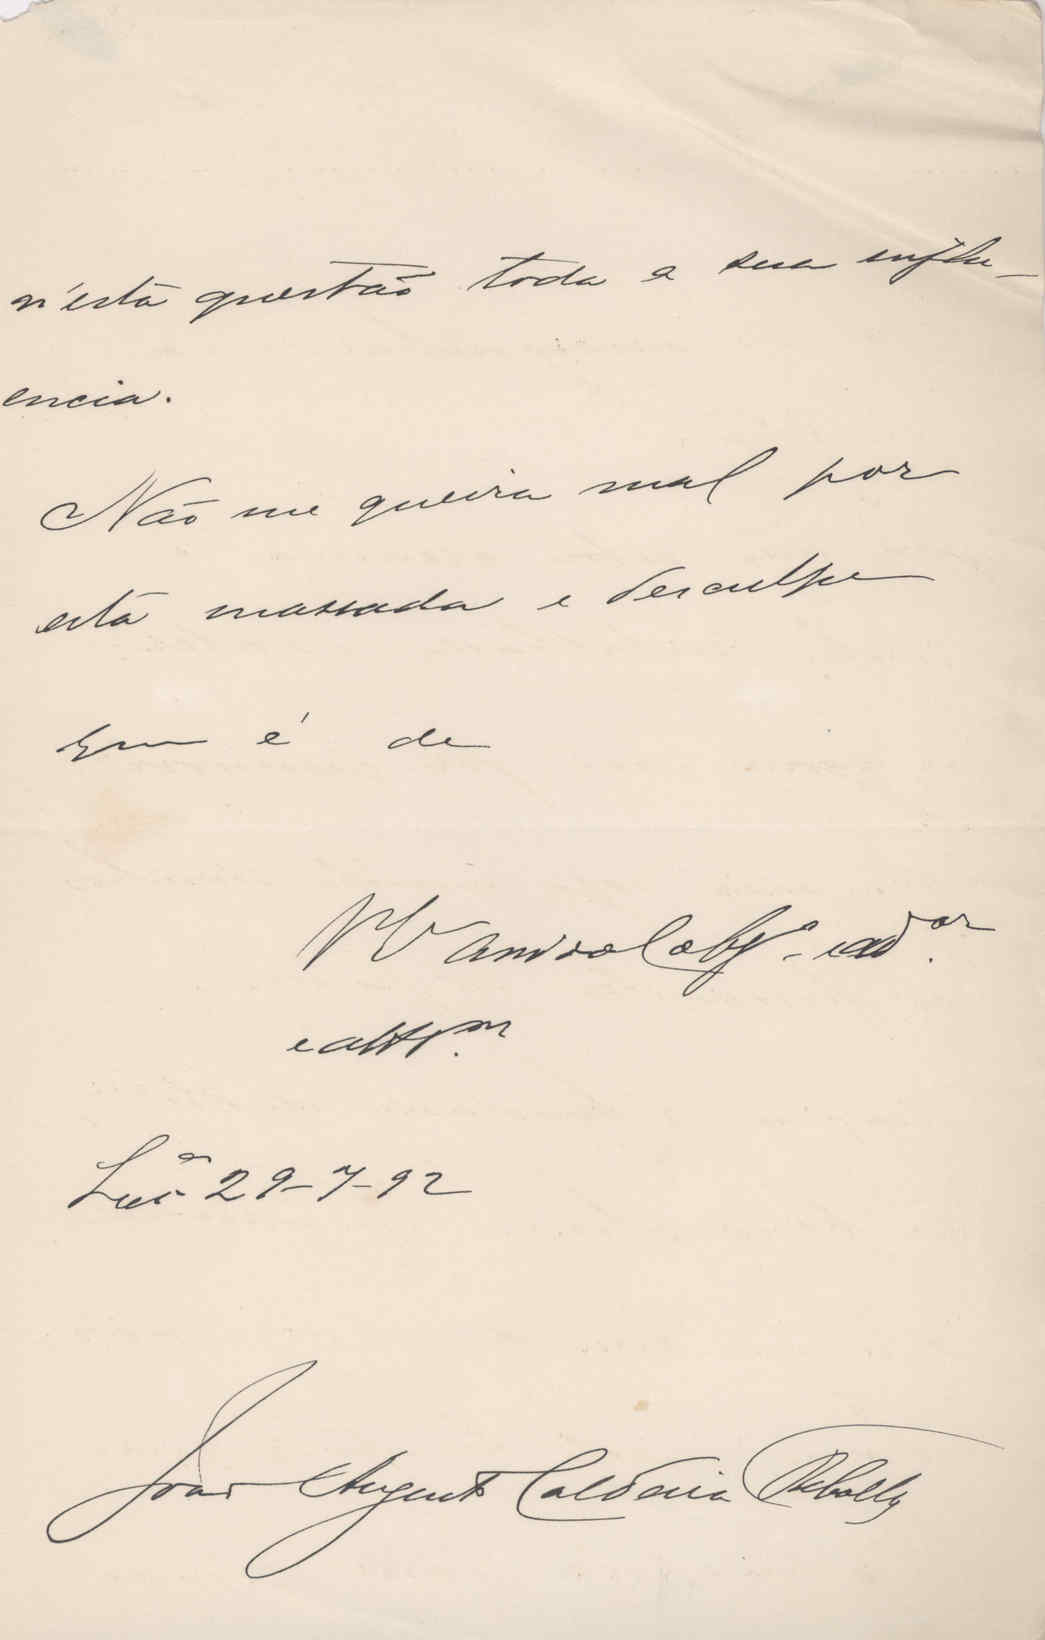 n'está questão toda a sua influ-
encia.
Não me queira mal por
está massada e desculpe
quem é de
V Ex.ª amigo obg.º e ad.or
e att.º m
Lxª 29-7-92
João Augusto Caldeira Rebollo